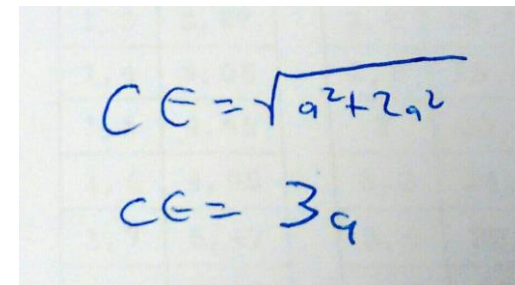 CE=√a²+2a²
CE= 3a